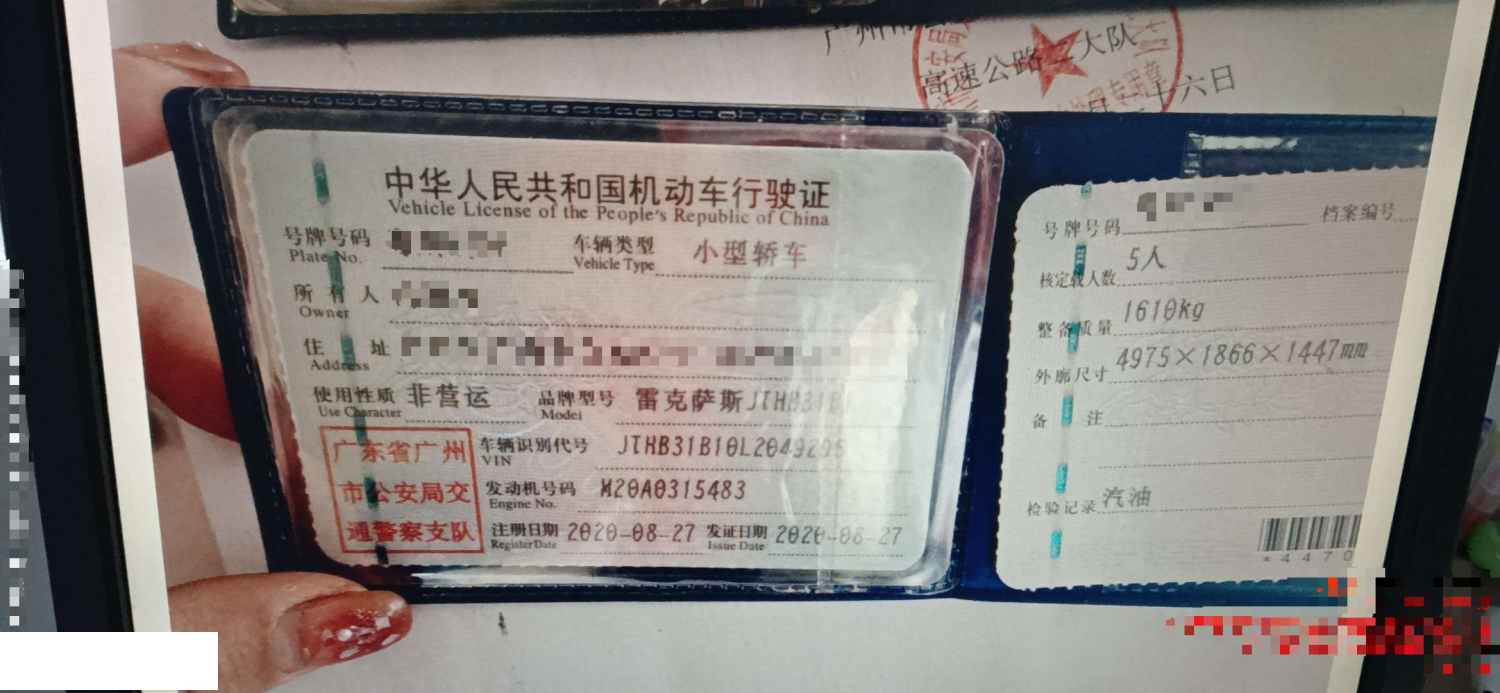 高速公路二大队
六日
中华人民共和国机动车行驶证
Vehicle License of the People's Republic of China
号牌号码
Plate No.
车辆类型 小型轿车
Vehicle Type
所有人
Owner
住址
Address
使用性质 非营运
Use Character
品牌型号 雷克萨斯JTHB31B
Model
车辆识别代号
VIN
JTHB31B10L2049295
发动机号码 M20A0315483
Engine No.
注册日期 2020-08-27 发证日期 2020-08-27
Register Date Issue Date
广东省广州
市公安局交
通警察支队
号牌号码 档案编号
核定载人数 5人
整备质量 1610kg
外廓尺寸 4975×1866×1447mm
备注
检验记录 汽油
*4470